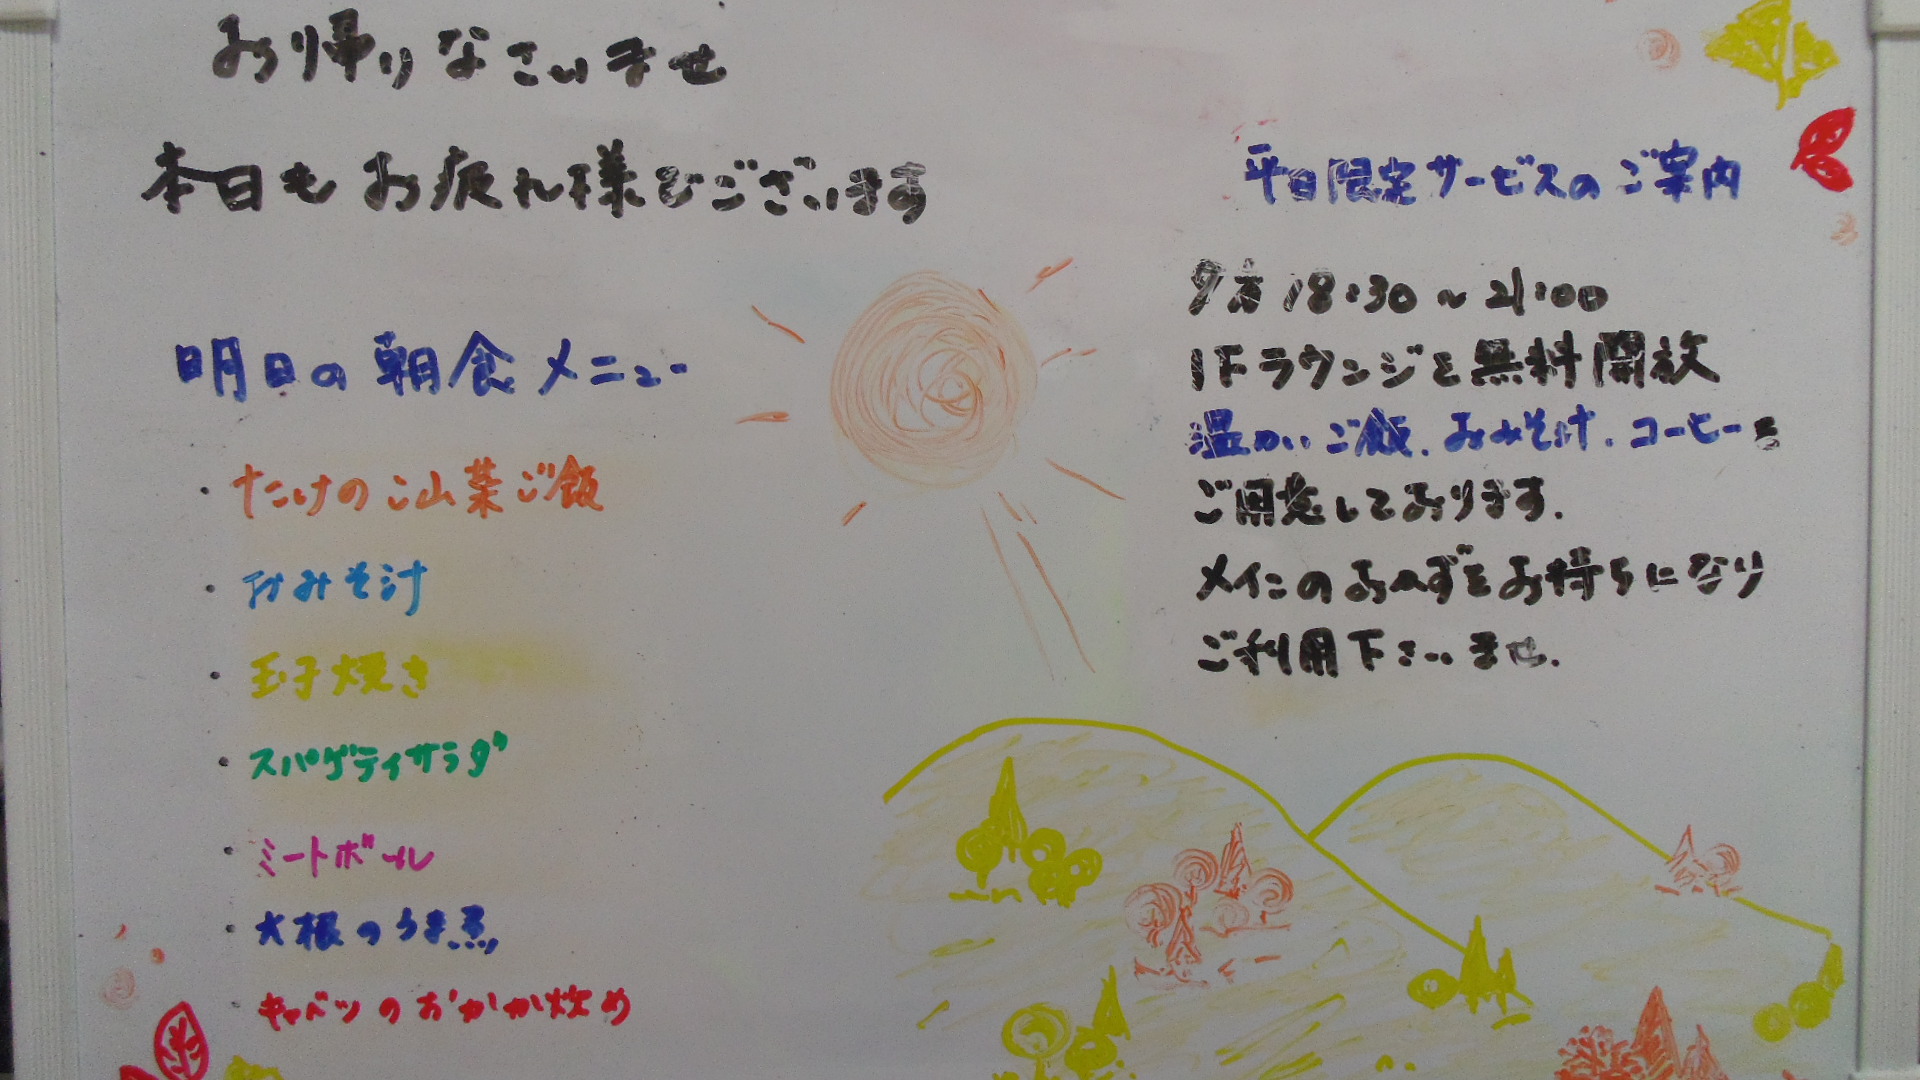 お帰りなさいませ
本日もお疲れ様でございます
明日の朝食メニュー
・たけのこ山菜ご飯
・おみそ汁
・玉子焼き
・スパゲティサラダ
・ミートボール
・大根のうま煮
・キャベツのおかか炒め
平日限定サービスのご案内
夕方18:30~21:00
1Fラウンジを無料開放
温かいご飯、おみそ汁、コーヒーを
ご用意しております。
メインのおかずをお持ちになり
ご利用下さいませ。